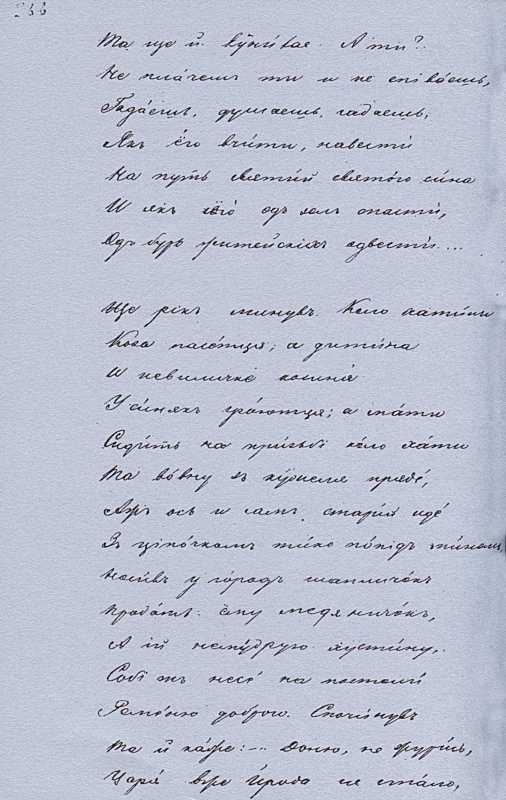 Та ще й. купи́тае. А ти?
Не пла́чешъ ти и не спiва́ешъ,
Гада́ешъ, думаешъ, гада́ешъ,
Якъ ёго вчи́ти, навести́
На путь святи́й свято́го си́на
И якъ ёго́ одъ золъ спасти́,
Одъ буръ жите́йскiхъ одвести́....
Ще рiкъ мину́въ. Коло хати́ни
Коза пасе́тця; а дити́на
И невеличке́ козеня́
У сiняхъ гра́ютця; а ма́ти
Сиди́ть на при́зьбi ко́ло ха́ти
Та во́вну зъ ку́желя пряде́,
Ажъ ось и самъ стари́й иде́
Зъ цiпо́чкомъ тихо по́пiдъ ти́номъ,
Носи́въ у го́родъ шапличо́къ
Прода́ть. Ёму медяничо́къ,
А iй нему́друю хусти́ну,
Собi жъ несе́ на постоли́
Реме́ню доброго. Спочи́нувъ
Та й ка́же: — Доню, не журись,
Царя́ вже И́рода не ста́ло,